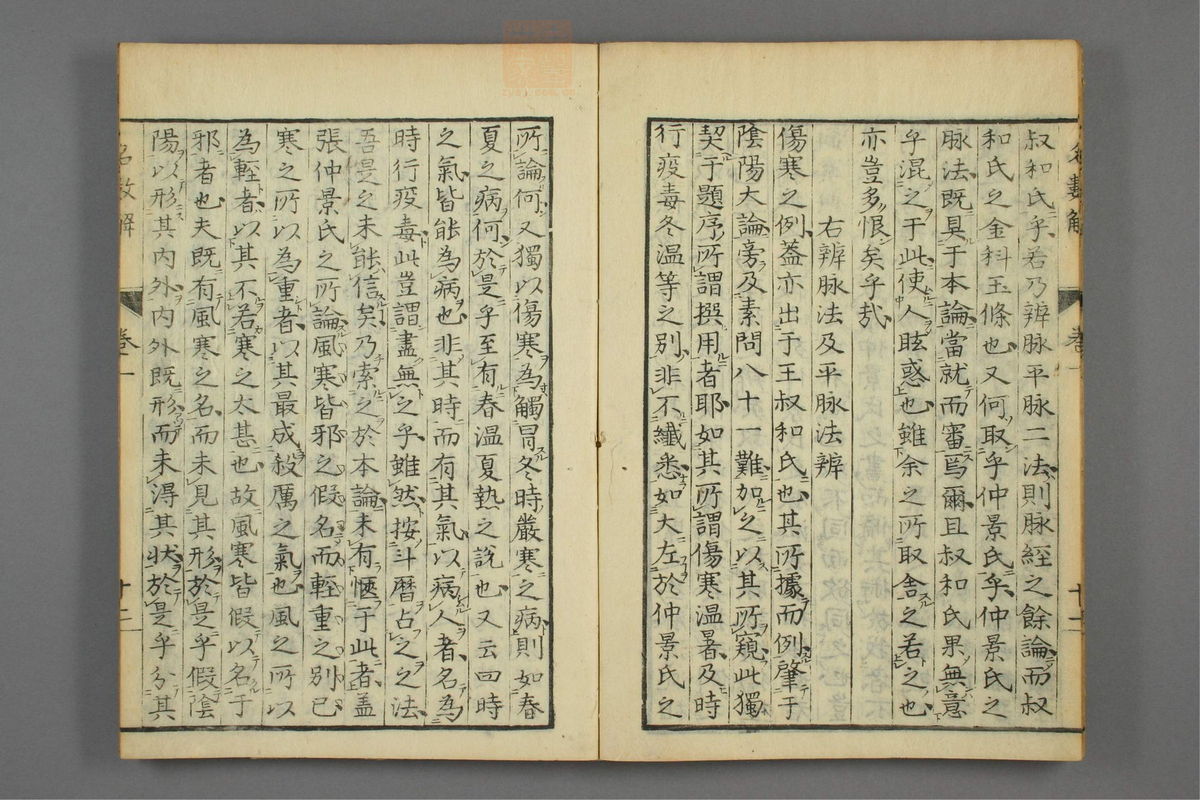 叔和氏乎若乃辨脉平脉二法則脉經之餘論而叔
和氏之金科玉條也又何取乎仲景氏乎仲景氏之
脉法既具于本論當就而審焉爾且叔和氏果無意
乎混之于此使人眩惑也雖余之所取舍之若之也
亦豈多恨矣乎哉
右辨脉法及平脉法辨
傷寒之例蓋亦出于王叔和氏也其所據而例肇于
陰陽大論旁及素問八十一難加之以其所窺此獨
契于題序所謂撰用者耶如其所謂傷寒温暑及時
行疫毒冬温等之別非不纖悉如大左於仲景氏之
卷一
十二
所論何又獨以傷寒為觸冒冬時嚴寒之病則如春
夏之病何於是乎至有春温夏熱之説也又云四時
之氣皆能為病也非其時而有其氣以病人者名為
時行疫毒此豈謂盡無之乎雖然按斗暦占之之法
吾畏之未能信矣乃索之於本論未有愜于此者蓋
張仲景氏之所論風寒皆邪之假名而輕重之別已
寒之所以為重者以其最成殺厲之氣也風之所以
為輕者以其不若寒之太甚也故風寒皆假以名于
邪者也夫既有風寒之名而未見其形於是乎假陰
陽以形其内外内外既形而未得其状於是乎分其
名數解
卷一
十二